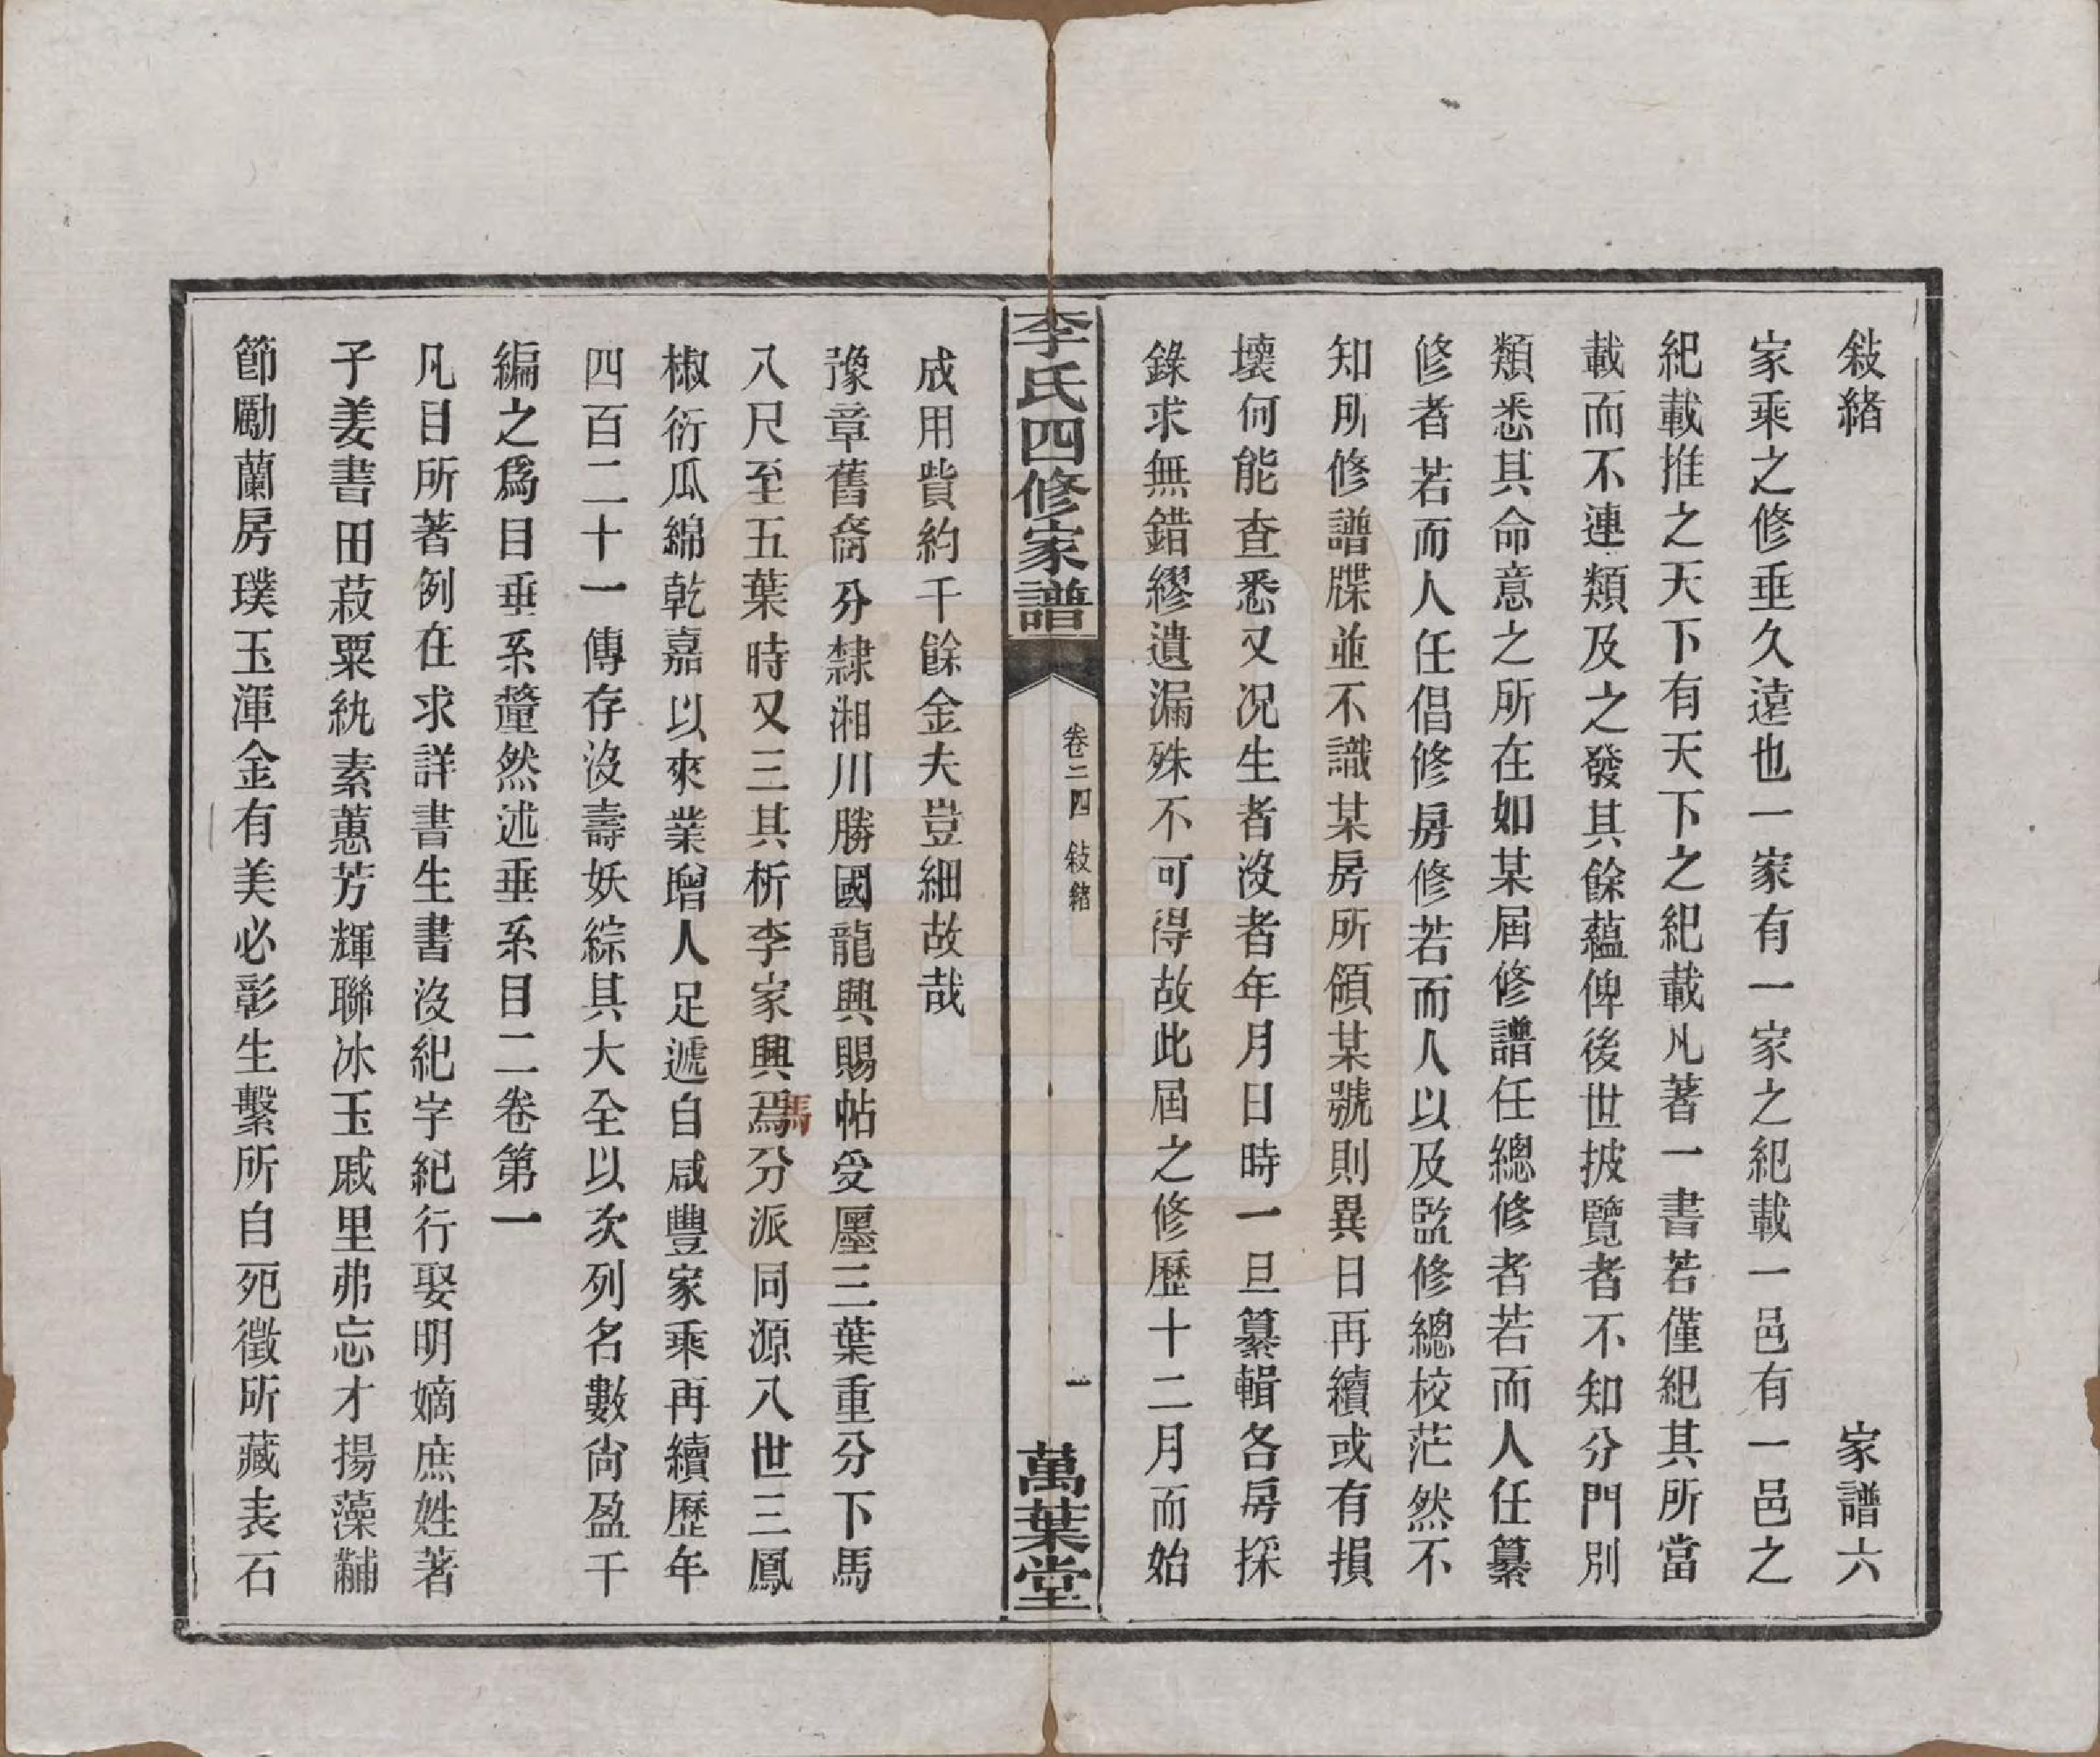 敍緒　家譜六
家乘之修垂久遠也一家有一家之紀載一邑有一邑之
紀載推之天下有天下之紀載凡著一書若僅紀其所當
載而不連類及之發其餘蘊俾後世披覽者不知分門別
類悉其命意之所在如某屆修譜任總修者若而人任纂
修者若而人任倡修房修若而人以及監修總校茫然不
知所修譜牒並不識某房所領某號則異日再續或有損
壞何能查悉又况生者沒者年月日時一旦纂輯各房採
錄求無錯繆遺漏殊不可得故此屆之修歷十二月而始
李氏四修家譜　卷二四　敍緒　一　萬葉堂
成用貲約千餘金夫豈細故哉
豫章舊裔分隸湘川勝國龍興賜帖受廛三葉重分下馬
八尺至五葉時又三其析李家興焉分派同源八世三鳳
馬
椒衍瓜綿乾嘉以來業增人足遞自咸豐家乘再續歷年
四百二十一傳存沒壽妖綜其大全以次列名數尙盈千
編之爲目垂系釐然述垂系目二卷第一
凡目所著例在求詳書生書沒紀字紀行娶明嫡庶姓著
子姜書田菽粟紈素蕙芳輝聯冰玉戚里弗忘才揚藻黼
節勵蘭房璞玉渾金有美必彰生繫所自死徵所藏表石